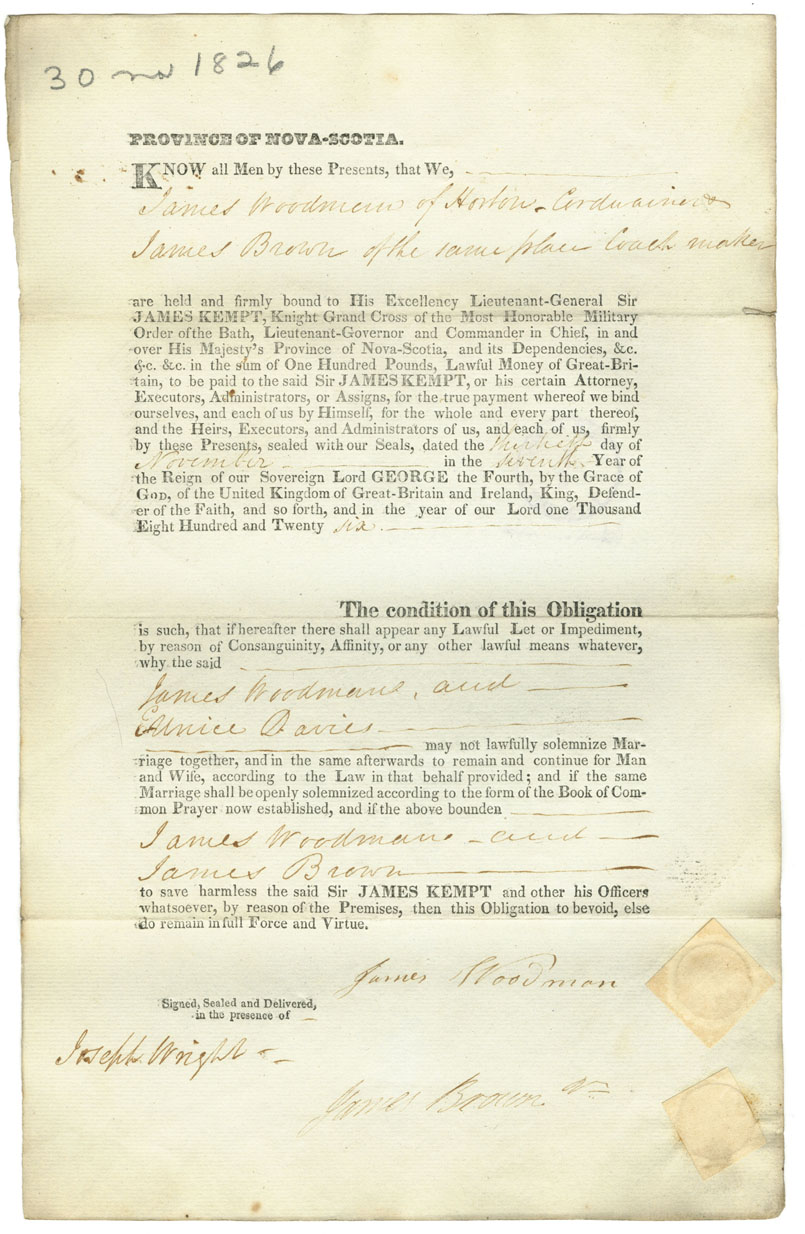 30 Nov 1826
PROVINCE OF NOVA-SCOTIA.
KNOW all Men by these Presents, that We,
James Woodman of Horton Cordwainer &
James Brown of the same place Coach maker
are held and firmly bound to His Excellency Lieutenant-General Sir
JAMES KEMPT, Knight Grand Cross of the Most Honorable Military
Order of the Bath, Lieutenant-Governor and Commander in Chief, in and
over His Majesty's Province of Nova-Scotia, and its Dependencies, &c.
&c. &c. in the sum of One Hundred Pounds, Lawful Money of Great-Bri-
tain, to be paid to the said Sir JAMES KEMPT, or his certain Attorney,
Executors, Administrators, or Assigns, for the true payment whereof we bind
ourselves, and each of us by Himself, for the whole and every part thereof,
and the Heirs, Executors, and Administrators of us, and each of us, firmly
by these Presents, sealed with our Seals, dated the thirtieth day of
November in the seventh Year of
the Reign of our Sovereign Lord GEORGE the Fourth, by the Grace of
GOD, of the United Kingdom of Great-Britain and Ireland, King, Defend-
er of the Faith, and so forth, and in the year of our Lord one Thousand
Eight Hundred and Twenty six.
The condition of this Obligation
is such, that if hereafter there shall appear any Lawful Let or Impediment,
by reason of Consanguinity, Affinity, or any other lawful means whatever,
why the said
James Woodman, and
Eunice Davies
may not lawfully solemnize Mar-
riage together, and in the same afterwards to remain and continue for Man
and Wife, according to the Law in that behalf provided; and if the same
Marriage shall be openly solemnized according to the form of the Book of Com-
mon Prayer now established, and if the above bounden
James Woodman and
James Brown
to save harmless the said Sir JAMES KEMPT and other his Officers
whatsoever, by reason of the Premises, then this Obligation to be void, else
do remain in full Force and Virtue.
James Woodman
Signed, Sealed and Delivered,
in the presence of
Joseph Wright
James Brown